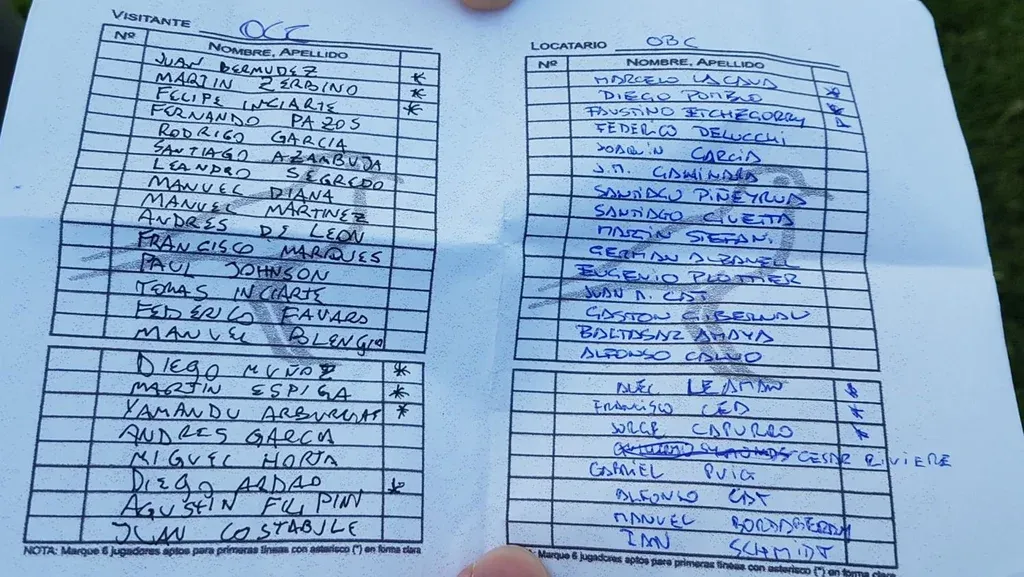 VISITANTE OCC
Nº NOMBRE, APELLIDO
JUAN BERMUDEZ *
MARTIN ZERBINO *
FELIPE INCIARTE *
FERNANDO PAZOS
RODRIGO GARCIA
SANTIAGO AZAMBUJA
LEANDRO SEGREDO
MANUEL DIANA
MANUEL MARTINEZ
ANDRES DE LEON
FRANCISCO MARQUES
PAUL JOHNSON
TOMAS INCIARTE
FEDERICO FAVARO
MANUEL BLENGIO
DIEGO MUÑOZ *
MARTIN ESPIGA *
YAMANDU *
ANDRES GARCIA
MIGUEL HORTA
DIEGO ARDAO *
AGUSTIN FILIPINI
JUAN COSTABILE
NOTA: Marque 6 jugadores aptos para primeras líneas con asterisco (*) en forma clara
LOCATARIO OBC
Nº NOMBRE, APELLIDO
MARCELO LACAVA *
DIEGO POMBO *
FAUSTINO ETCHEGORRY
FEDERICO DELUCCHI
JOAQUIN GARCIA
J.M. GAMINARA
SANTIAGO PIÑEYRUA
SANTIAGO CIVETTA
MARTIN STEFANI
GERMAN ALZANEL
EUGENIO PLOTTIER
JUAN M. CAT
GASTON GIBERNAU
BALTASAR AMAYA
ALFONSO CALVO
LEAMAN *
FRANCISCO CEA *
JORGE CAPURRO *
CESAR RIVIERE
GABRIEL PUIG
ALFONSO CAT
MANUEL BORDABERRY
IAN SCHMIDT
Marque 6 jugadores aptos para primeras líneas con asterisco (*) en forma clara